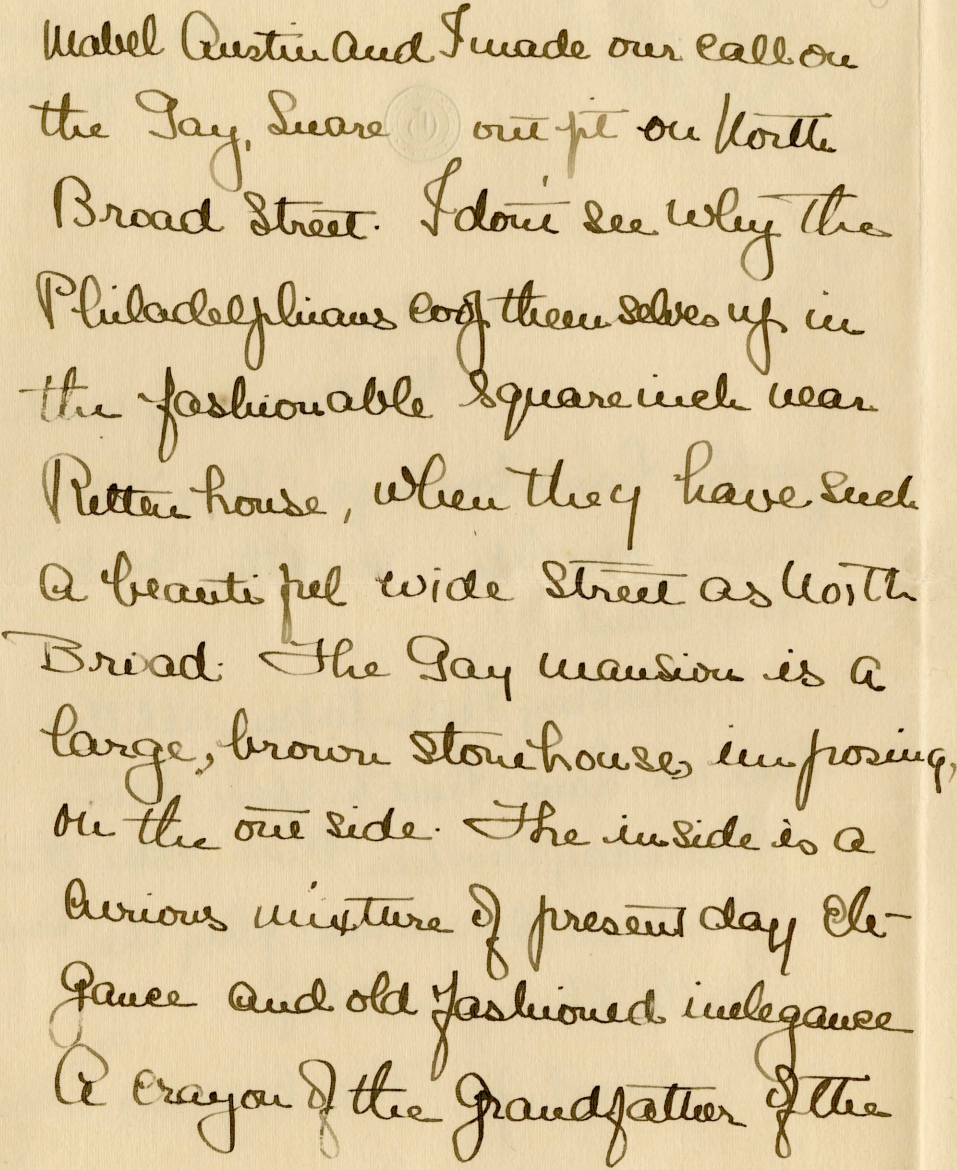 Mabel Austin and I made our call on
the Gay, on North
Broad Street. I don't see why the
Philadelphians coop themselves up in
the fashionable square inch near
Rittenhouse, when they have such
a beautiful wide street as North
Broad. The Gay mansion is a
large, brown stone house, imposing,
on the out side. The inside is a
curious mixture of present day ele-
gance and old fashioned inelegance
A crayon of the Grandfather of the